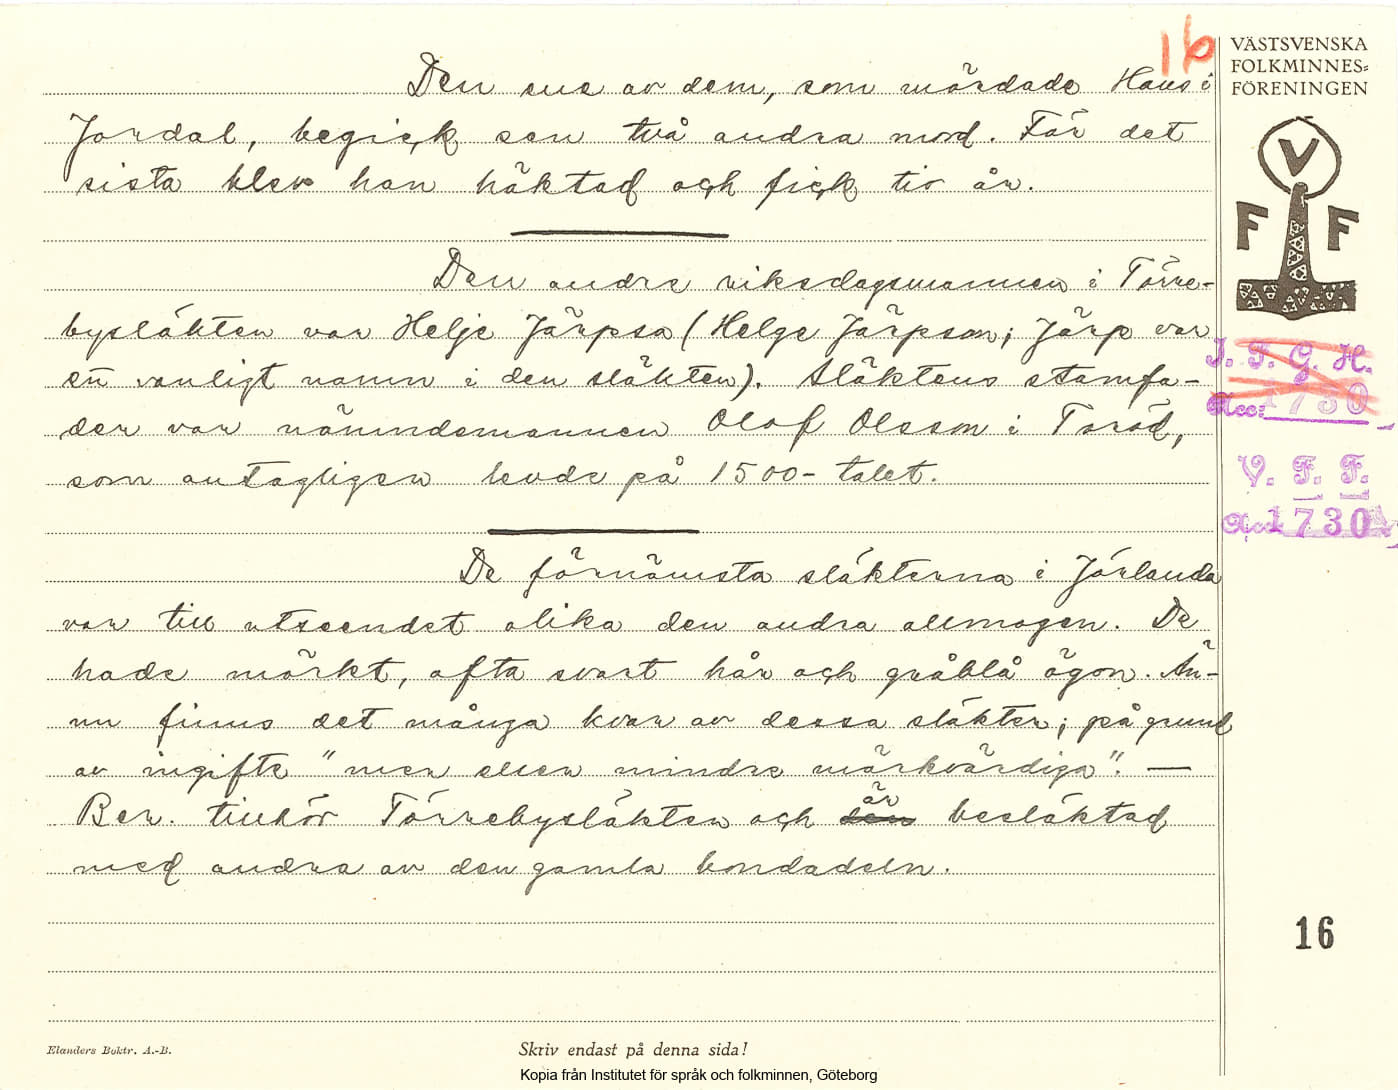 16
VÄSTSVENSKA
FOLKMINNES=
FÖRENINGEN
V
F F
Den ene av dem, som mördade Hans i
Jordal, begick sen två andra mord. För det
sista blev han häktad och fick tio år.
Den andre riksdagsmannen i Törre-
bysläkten var Helje Järpsa (Helge Järpson; Järp var
en vanligt namn i den släkten). Släktens stamfa-
der var nämndemannen Olof Olsson i Toröd,
som antagligen levde på 1500-talet.
De förnämsta släkterna i Jörlanda
var till utseendet olika den andra allmogen. De
hade mörkt, ofta svart hår och gråblå ögon. Än-
nu finns det många kvar av dessa släkter; på grund
av ingifte "mer eller mindre märkvärdiga". —
Ber. tillhör Törrebysläkten och är besläktad
med andra av den gamla bondadeln.
I. F. G. H.
Acc: 1730
V. F. F.
Acc 1730
16
Elanders Boktr. A.-B.
Skriv endast på denna sida!
Kopia från Institutet för språk och folkminnen, Göteborg